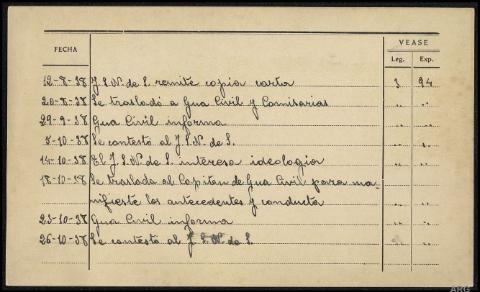 FECHA
VEASE
Leg. Exp.
12-8-38 J. S. N. de S. remite copia carta 3 94
20-8-38 Se trasladó a Gua Civil y Comisarias " "
29-9-38 Gua Civil informa " "
5-10-38 Se contestó al J. S. N. de S. " "
14-10-38 El J. S. N. de S. interesa ideologia " "
18-10-38 Se traslada al Capitan de Gua Civil para ma-
nifieste los antecedentes y conducta " "
23-10-38 Gua Civil informa " "
26-10-38 Se contestó al J. S. N. de S. " "
ARG